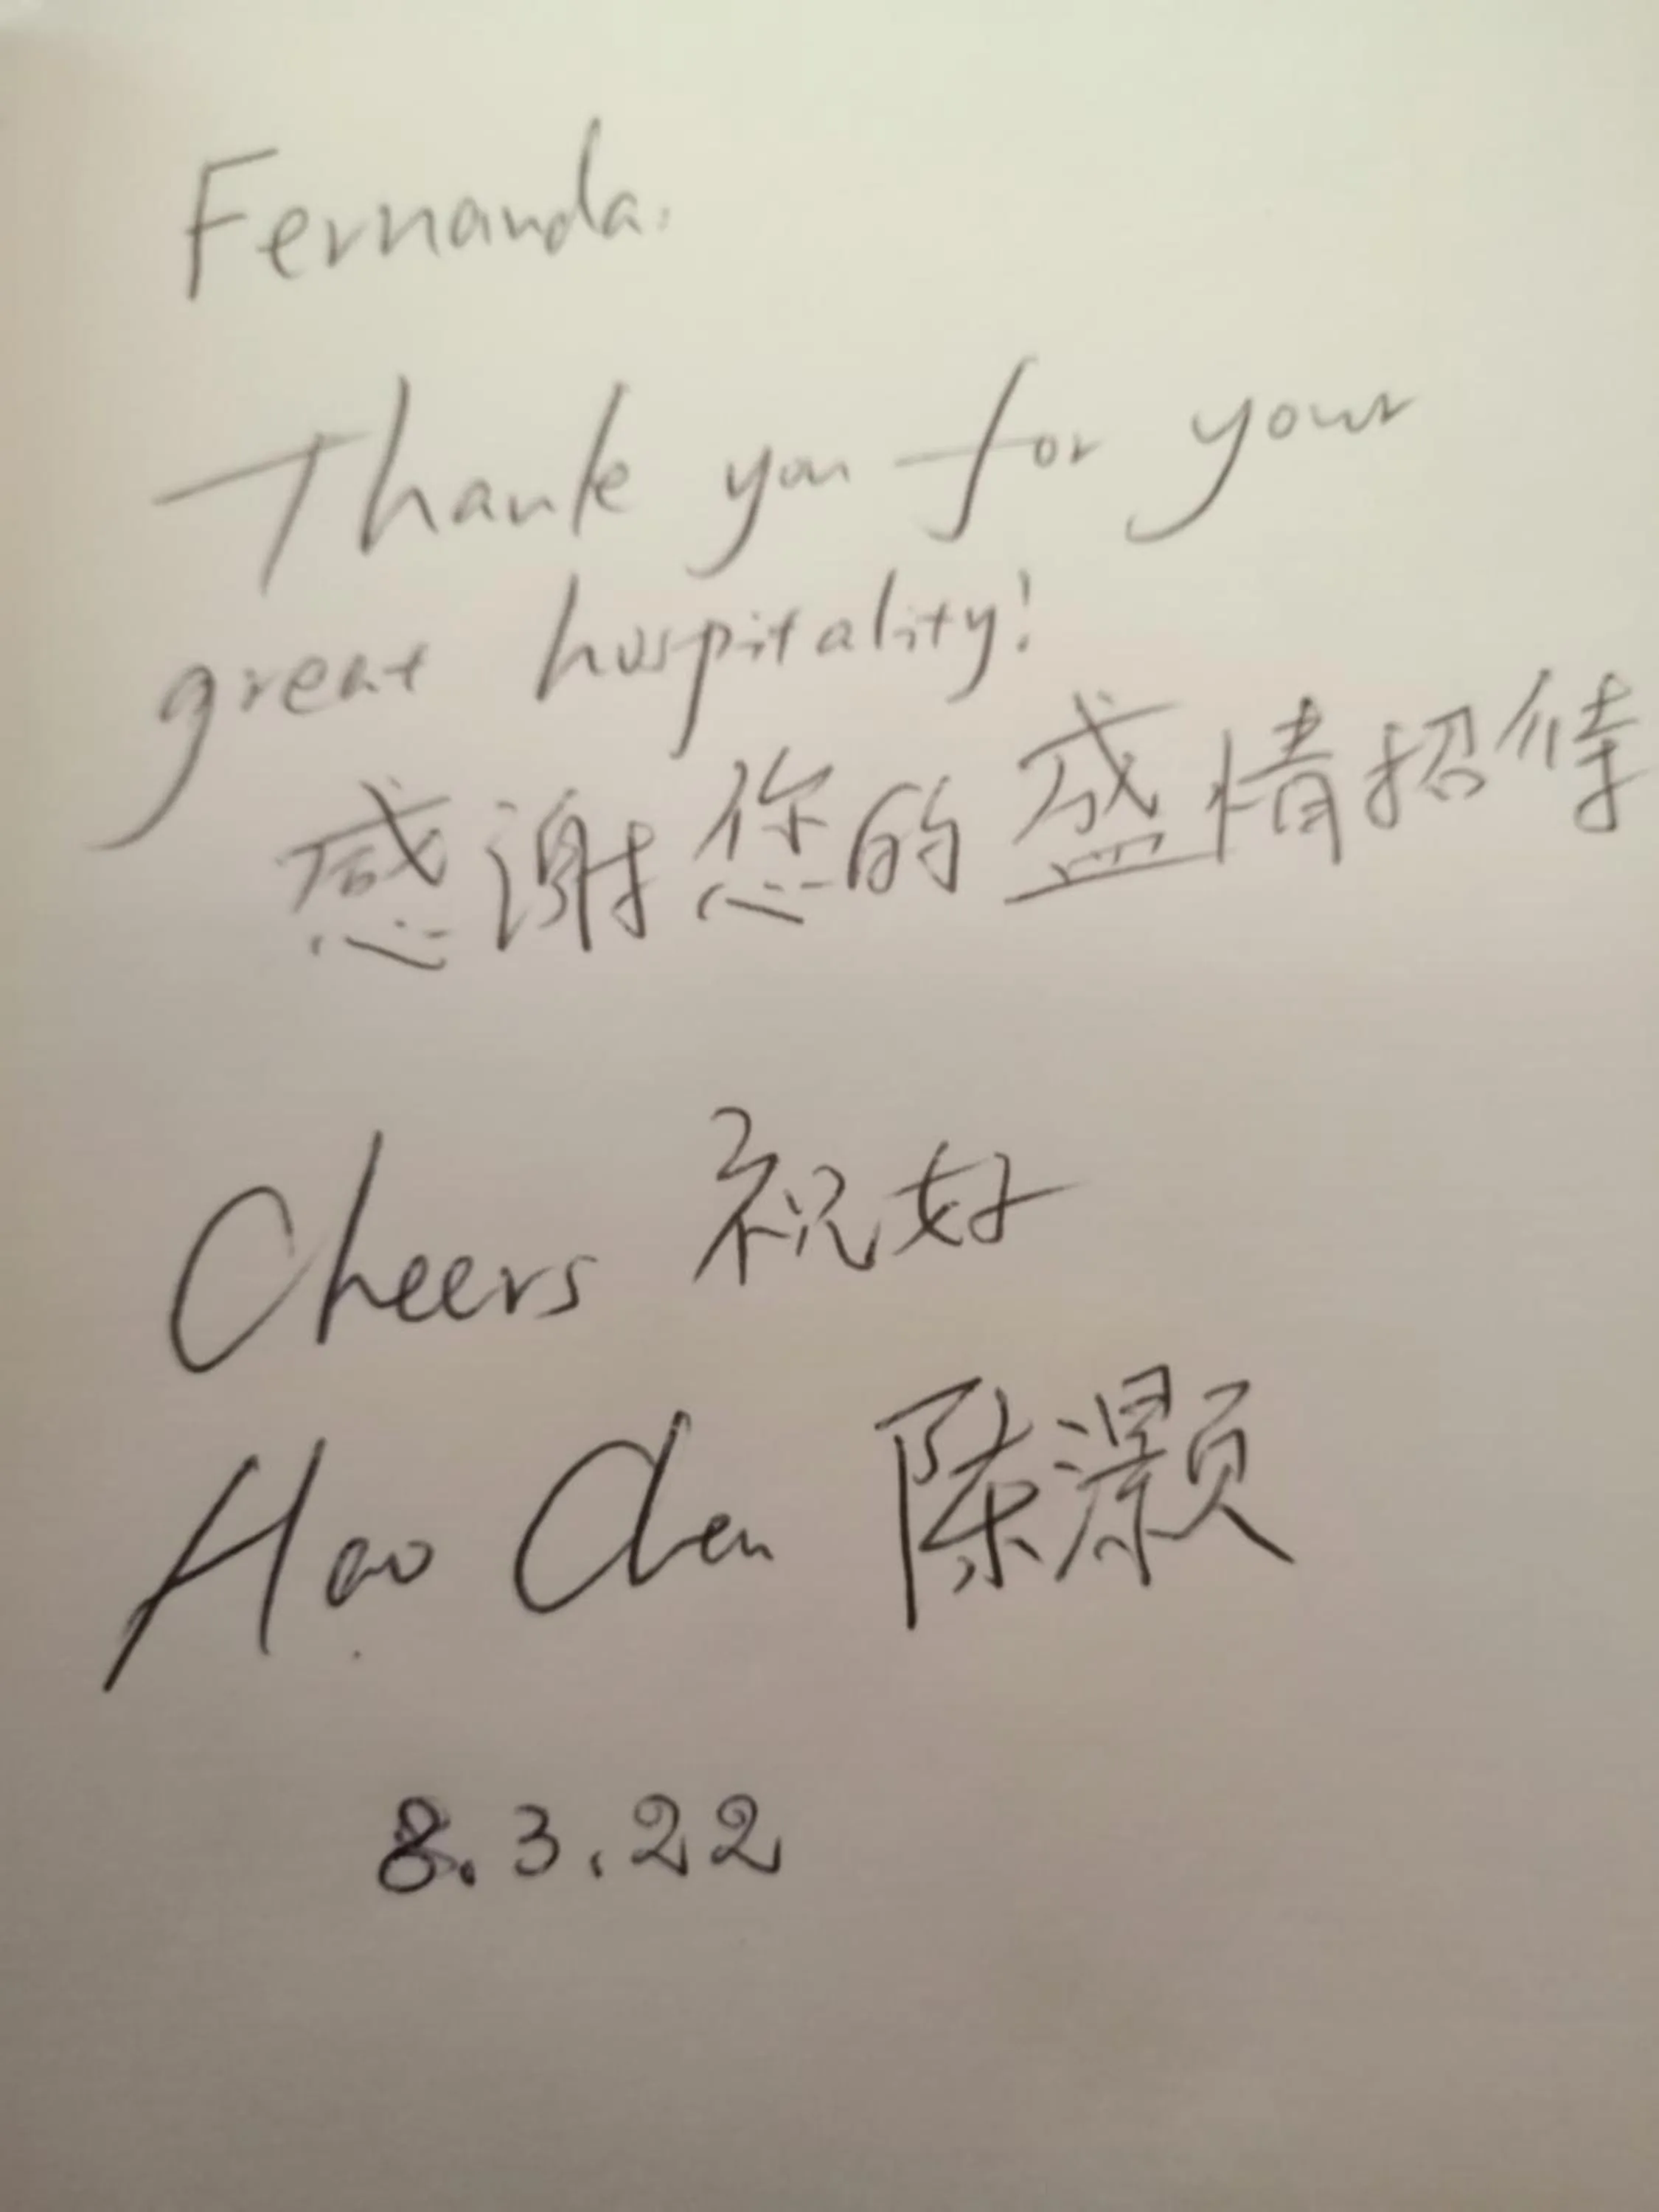 Fernanda,
Thank you for your
great hospitality!
感谢您的盛情招待
Cheers 祝好
Hao Chen 陈灏
8.3.22